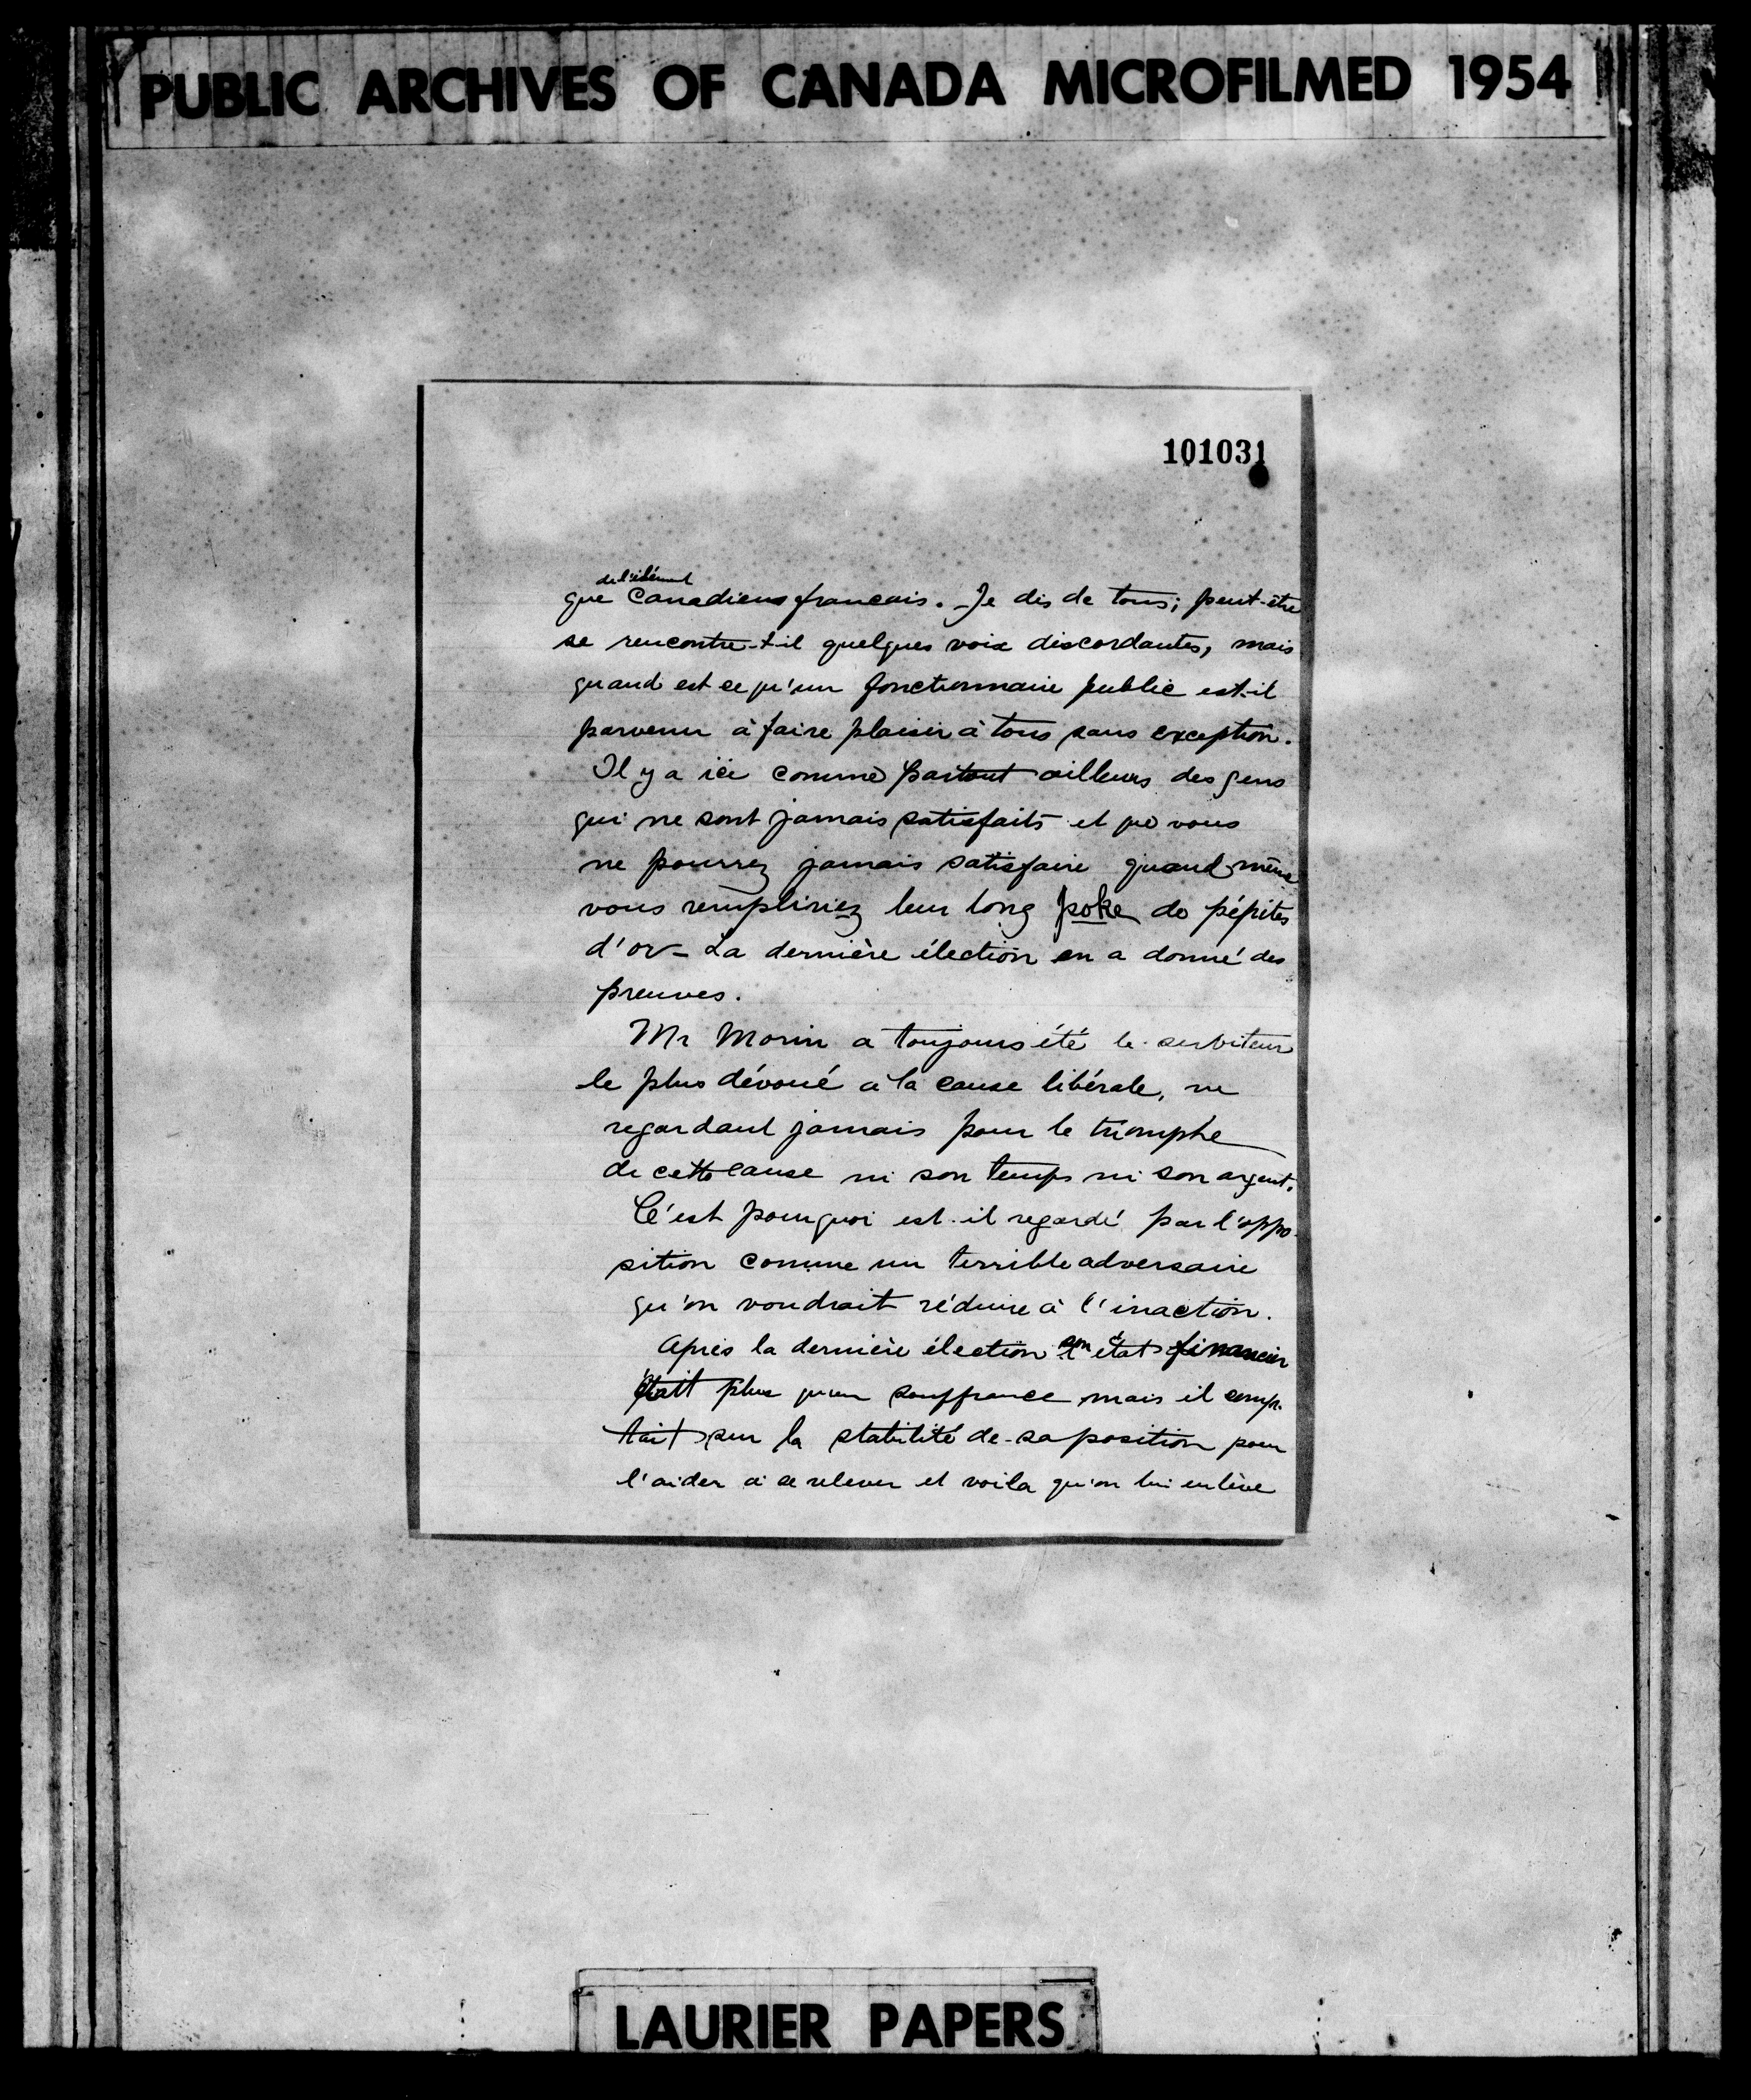 PUBLIC ARCHIVES OF CANADA MICROFILMED 1954
101031
de l'élément
que Canadiens francais. Je dis de tous; peut-être
se rencontre-t-il quelques voix discordantes, mais
quand est ce qu'un fonctionnaire public est-il
parvenu à faire plaisir à tous sans exception.
Il y a ici comme partout ailleurs des gens
qui ne sont jamais satisfaits et que vous
ne pourrez jamais satisfaire quand même
vous rempliriez leur long poke de pépites
d'or - La dernière élection en a donné des
preuves.
Mr Morin a toujours été le serviteur
le plus dévoué à la cause libérale, ne
regardant jamais pour le triomphe
de cette cause ni son temps ni son argent.
C'est pourquoi est-il regardé par l'oppo-
sition comme un terrible adversaire
qu'on voudrait réduire à l'inaction.
Après la dernière élection son état financier
était plus qu'en souffrance mais il comp-
tait sur la stabilité de sa position pour
l'aider à se relever et voila qu'on lui enlève
LAURIER PAPERS